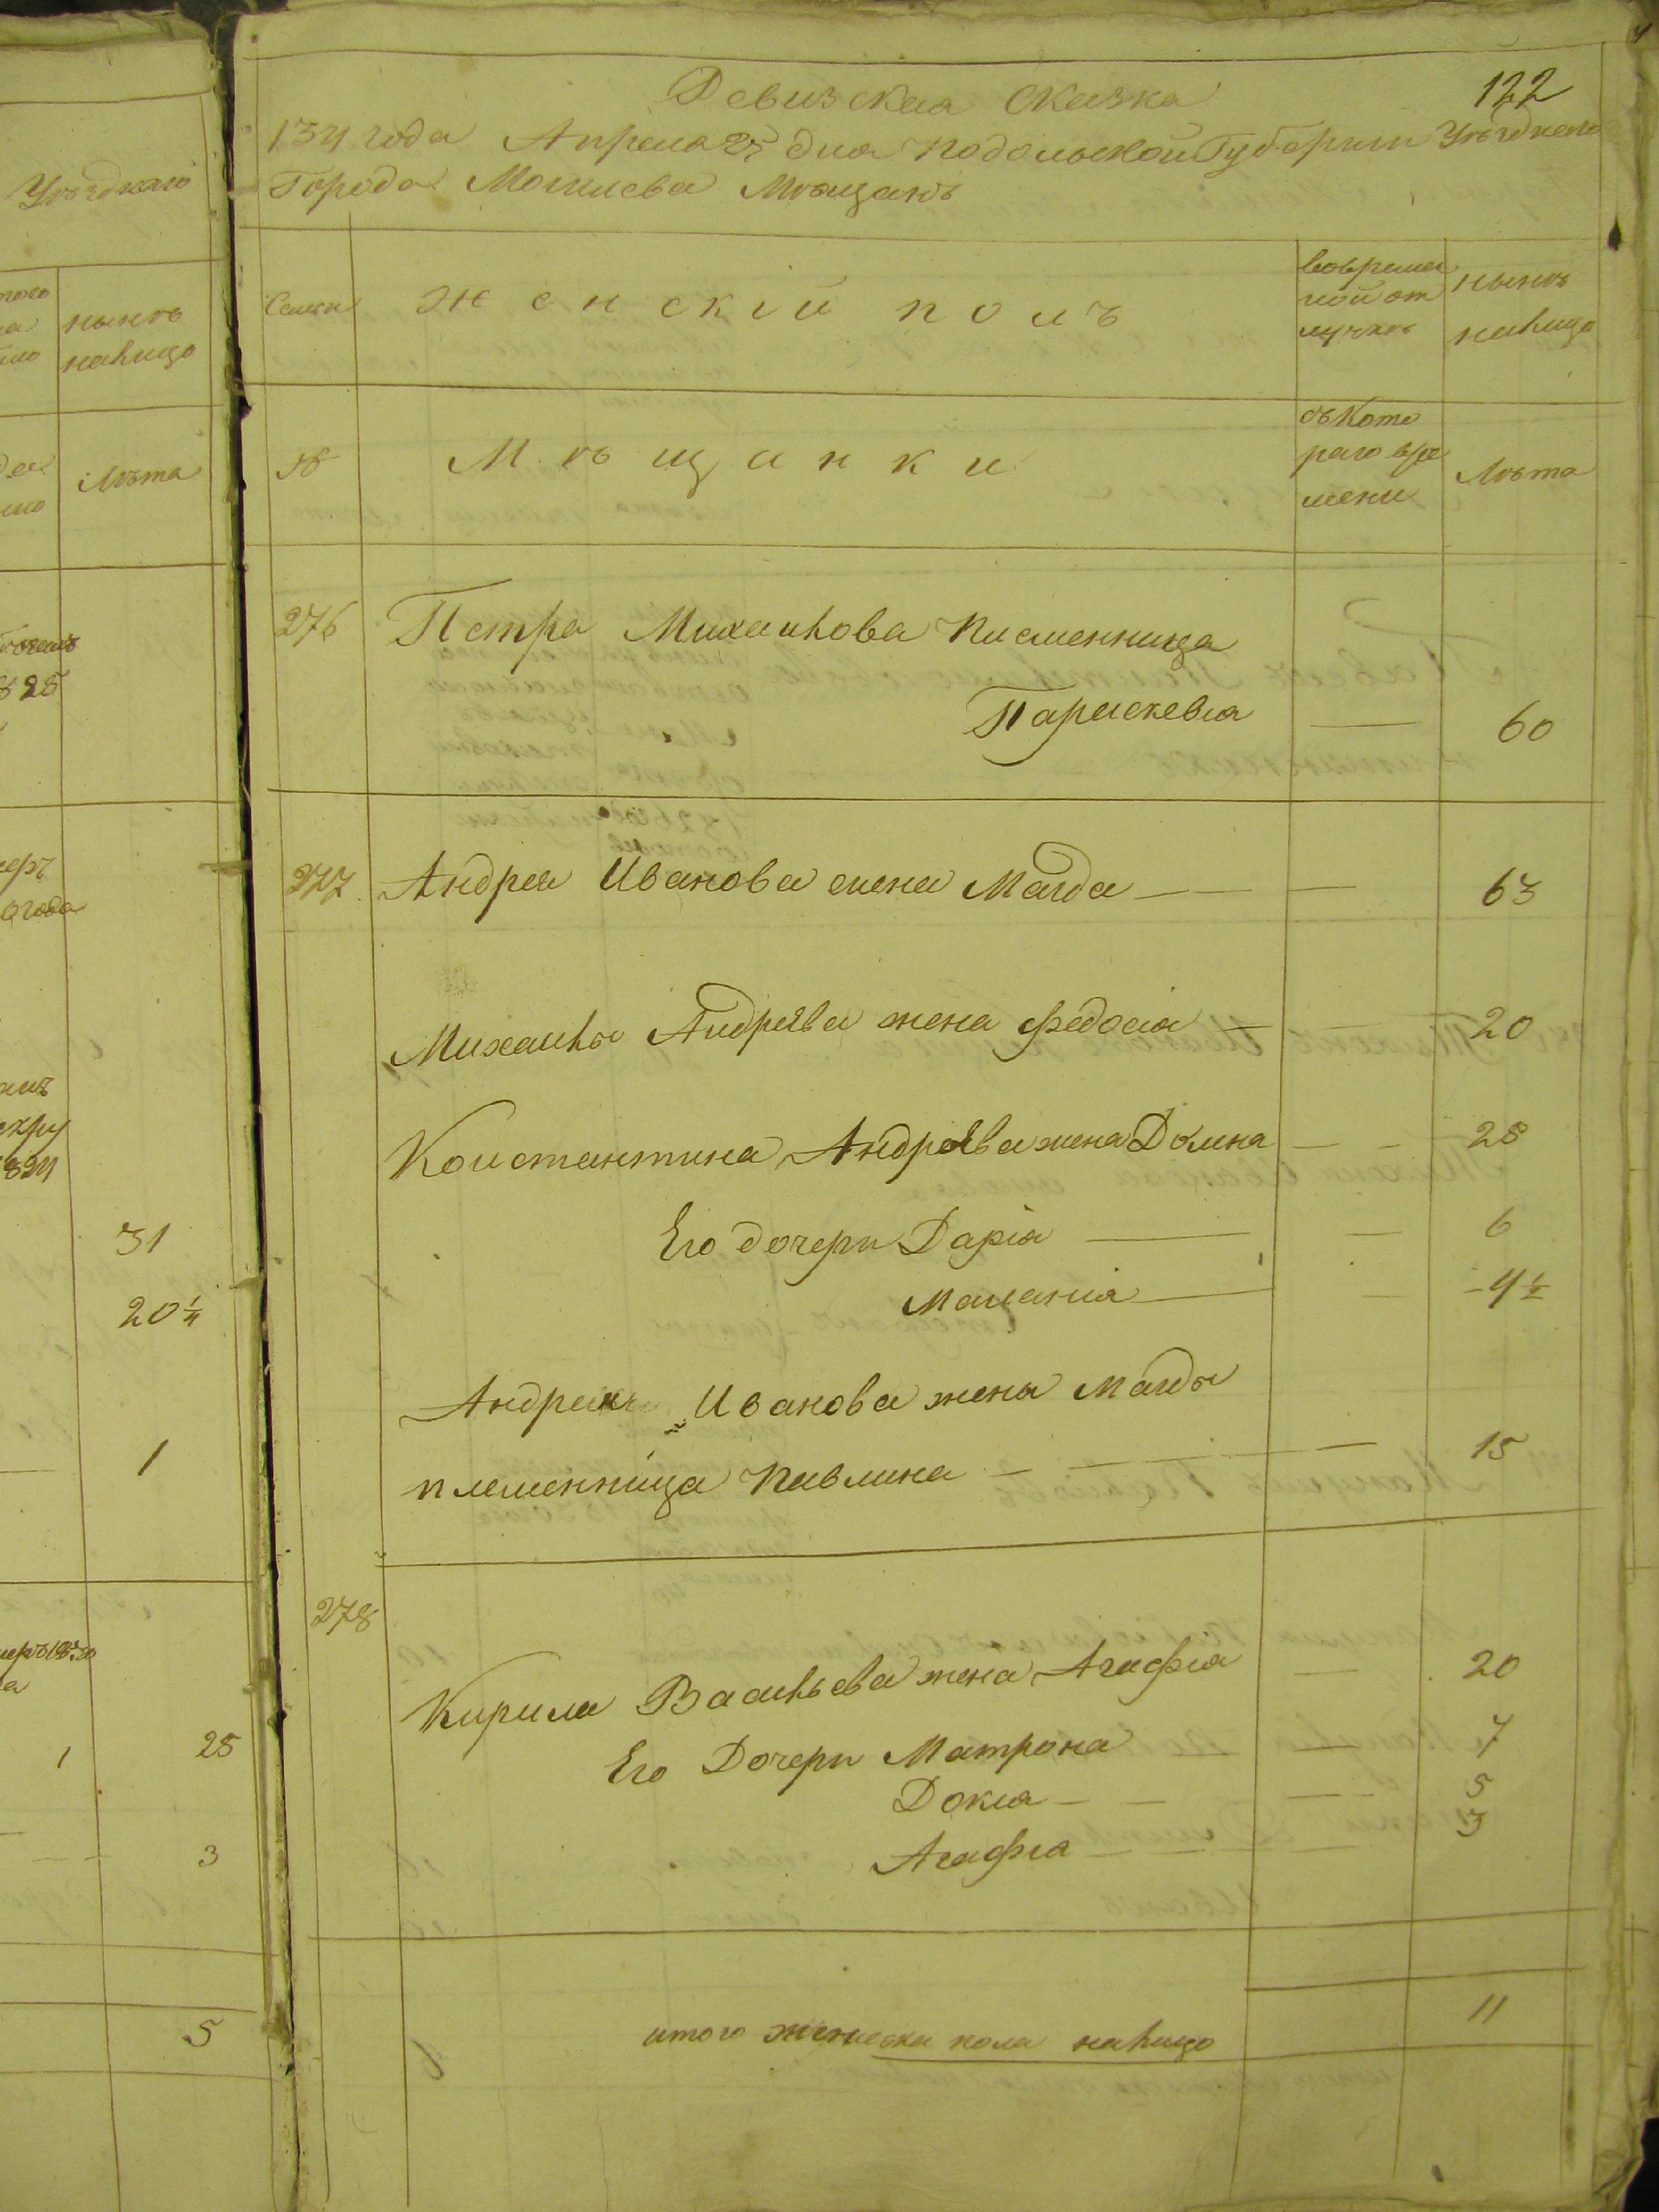 122
Ревизская Сказка
134 года Апреля 25 дня Подольской Губернии Уѣзднаго
Города Могилева Мѣщанъ
Уѣзднаго
Семьи
Женский полъ
вовремен
ной от
лучкѣ
нынѣ
налицо
нынѣ
налицо
№
Мѣщанки
съ Кото
раго вре
мени
Лѣта
Лѣта
276 Петра Михайлова Писменница
Параскевия — 60
277 Андрея Иванова жена Магда — — 63
Михайлы Андрѣева жена Федосія — — 20
Константина Андрѣева жена Домна — — 28
Его дочери Дарія — — 6
Маланія — — 4 ½
Андрея Иванова жены Магды
племенница Павлина — — 15
278
Кирила Васильева жена Агафія — 20
Его Дочери Матрона — 7
Докия — — 5
Агафия — — 3
итого женска пола налицо 11
825
года
31
20 ¼
1
1 25
3
5